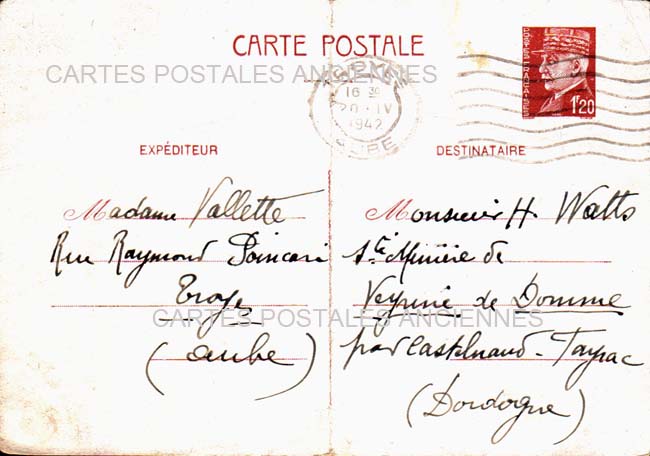 CARTE POSTALE
CARTES POSTALES ANCIENNES
16 30
20 · IV
1942
AUBE
1F20
EXPÉDITEUR
Madame Vallette
Rue Raymond Poincaré
Troyes
(Aube)
DESTINATAIRE
Monsieur H. Watts
Sté Minière de
Veyrine de Domme
par Castelnaud-Fayrac
(Dordogne)
CARTES POSTALES ANCIENNES